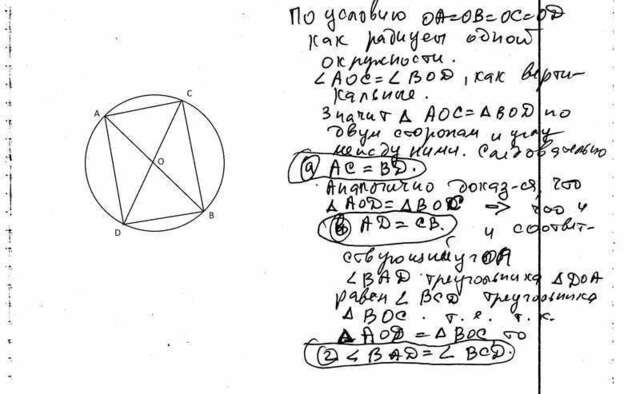 По условию OA=OB=OC=OD
как радиусы одной
окружности.
∠AOC=∠BOD, как верти-
кальные.
Значит △ AOC=△BOD по
двум сторонам и углу
между ними. Следовательно
а) AC=BD.
Аналогично доказ-ся, что
△AOD=△BOC ⇒ что и
AD=CB.
и соответ-
ствующий угол
∠BAD треугольника △DOA
равен ∠BCD треугольника
△BOC. т.е. т.к.
△AOD=△BOC то
∠BAD=∠BCD.
A
C
O
D
B